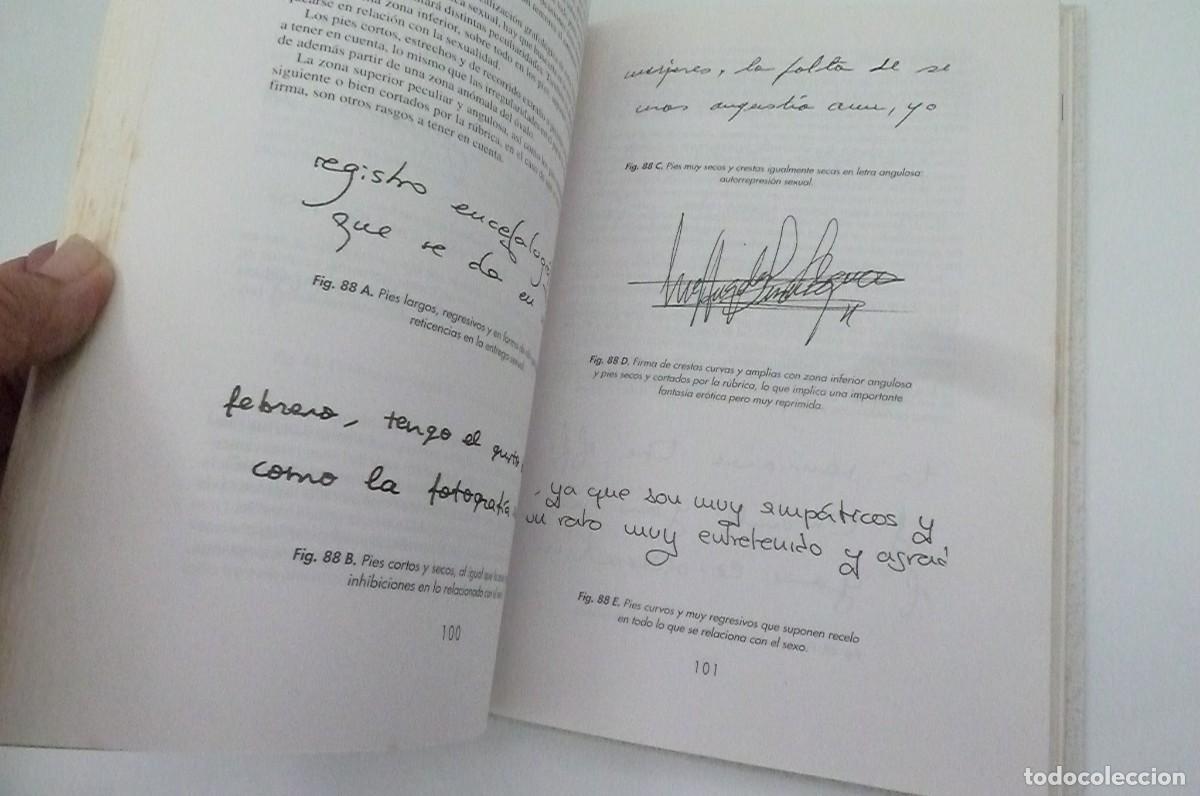 sexual, hay que
zona inferior, sobre todo en los pies
en relación con la sexualidad.
Los pies cortos, estrechos y de recorrido extraño
a tener en cuenta, lo mismo que las irregularidades
de además partir de una zona anómala del óvalo.
La zona superior peculiar y angulosa, así como los
siguiente o bien cortados por la rúbrica, en el caso de
firma, son otros rasgos a tener en cuenta.
registro encefalográ
que se da en
Fig. 88 A. Pies largos, regresivos y en forma de
reticencias en la entrega sexual.
febrero, tengo el gusto
como la fotografía
Fig. 88 B. Pies cortos y secos, al igual que
inhibiciones en lo relacionado con el
100
mujeres, la falta de se
mas angustia aun, yo
Fig. 88 C. Pies muy secos y crestas igualmente secas en letra angulosa:
autorrepresión sexual.
Fig. 88 D. Firma de crestas curvas y amplias con zona inferior angulosa
y pies secos y cortados por la rúbrica, lo que implica una importante
fantasía erótica pero muy reprimida.
, ya que son muy simpáticos y
un rato muy entretenido y agrad
Fig. 88 E. Pies curvos y muy regresivos que suponen recelo
en todo lo que se relaciona con el sexo.
101
todocoleccion